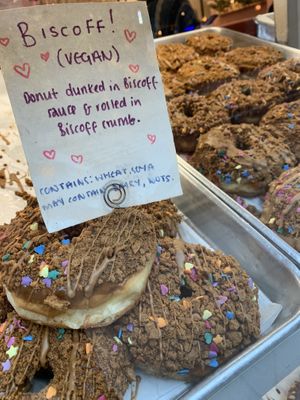 BISCOFF!
(VEGAN)
Donut dunked in Biscoff
sauce & rolled in
Biscoff crumb.
CONTAINS: WHEAT, SOYA
MAY CONTAIN: DAIRY, NUTS.